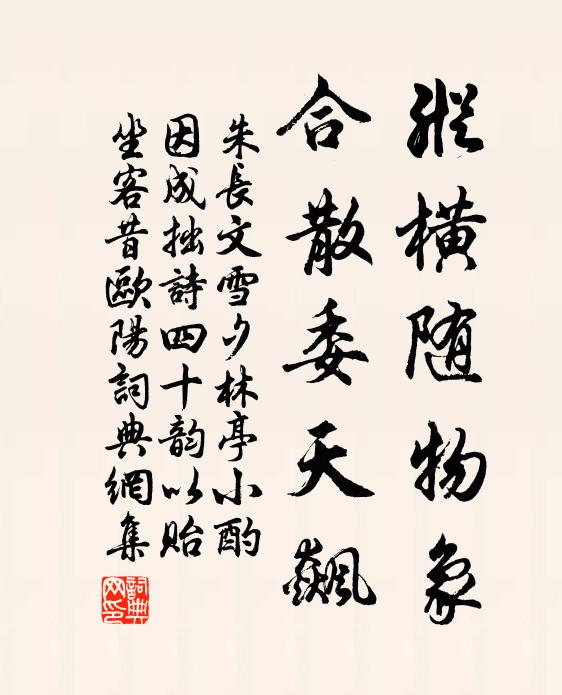 縱橫随物象
合散委天飆
朱長文雪夕林亭小酌
因成拙詩四十韵以貽
坐客昔歐陽詞典網集
詞典
网印